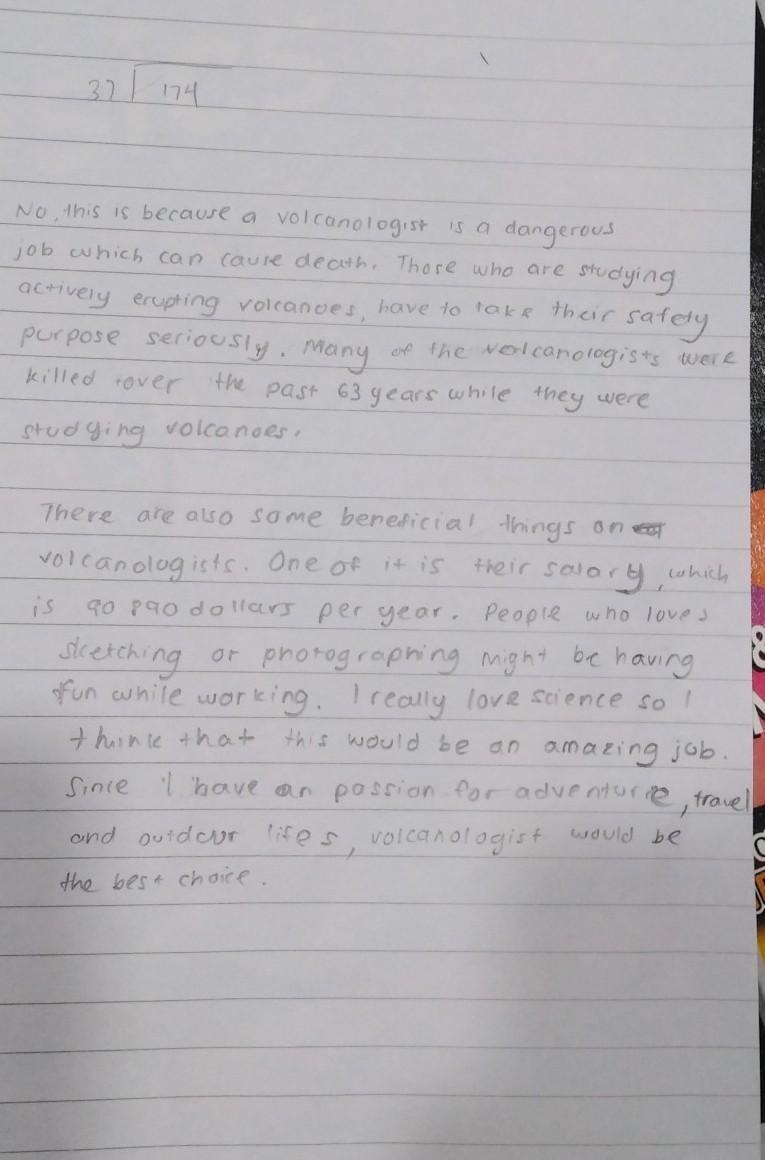 37 174
No, this is because a volcanologist is a dangerous
job which can cause death. Those who are studying
actively erupting volcanoes, have to take their safety
purpose seriously. Many of the volcanologists were
killed over the past 63 years while they were
studying volcanoes.
There are also some beneficial things on
volcanologists. One of it is their salary, which
is 90 890 dollars per year. People who loves
sketching or photographing might be having
fun while working. I really love science so I
think that this would be an amazing job.
Since I have an passion for adventure, travel
and outdour lifes, volcanologist would be
the best choice.